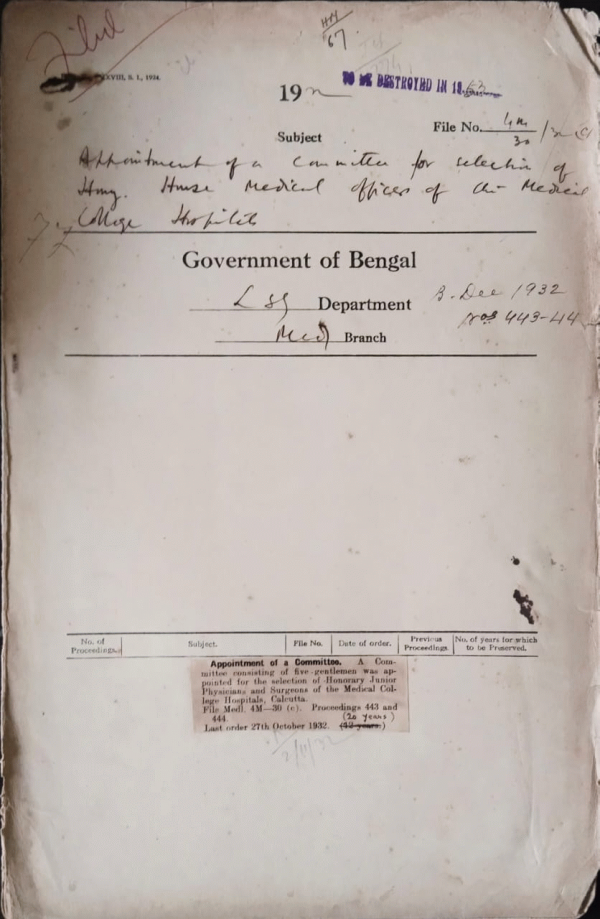 Filed
HM
67
XXVIII, S. 1, 1924.
19
TO BE DESTROYED IN 19 53
File No. 4M/30
Subject
Appointment of a Committee for selection of
Hony. House Medical Officers of the Medical
College Hospitals
Government of Bengal
LSG Department
B. Dec 1932
Nos 443-44
Med Branch
No. of Proceedings.
Subject.
File No.
Date of order.
Previous Proceedings.
No. of years for which to be Preserved.
Appointment of a Committee. A Com-
mittee consisting of five gentlemen was ap-
pointed for the selection of Honorary Junior
Physicians and Surgeons of the Medical Col-
lege Hospitals, Calcutta.
File Medl. 4M—30 (c). Proceedings 443 and
444. (20 years)
Last order 27th October 1932. (12 years.)